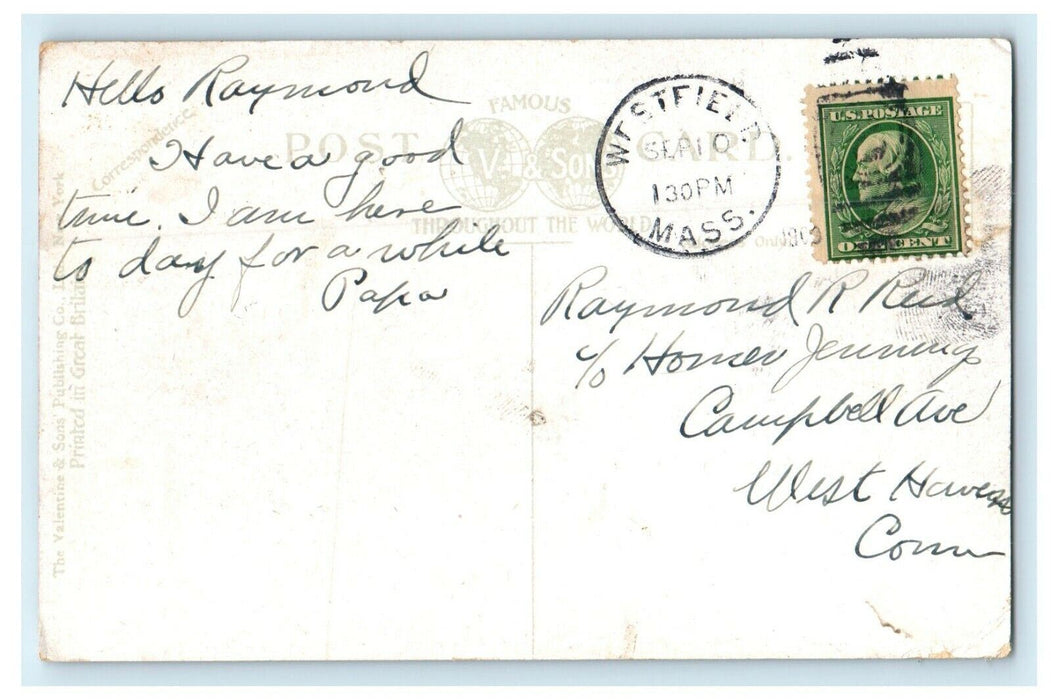 Hello Raymond
Have a good
time. I am here
to day for a while
Papa
Correspondence
FAMOUS
POST CARD.
V. & SONS
THROUGHOUT THE WORLD
The Valentine & Sons Publishing Co., New York
Printed in Great Britain
WESTFIELD
SEP 10
130PM
MASS.
1909
U.S. POSTAGE
ONE CENT
Raymond R Reid
c/o Homer Jennings
Campbell Ave
West Haven
Conn